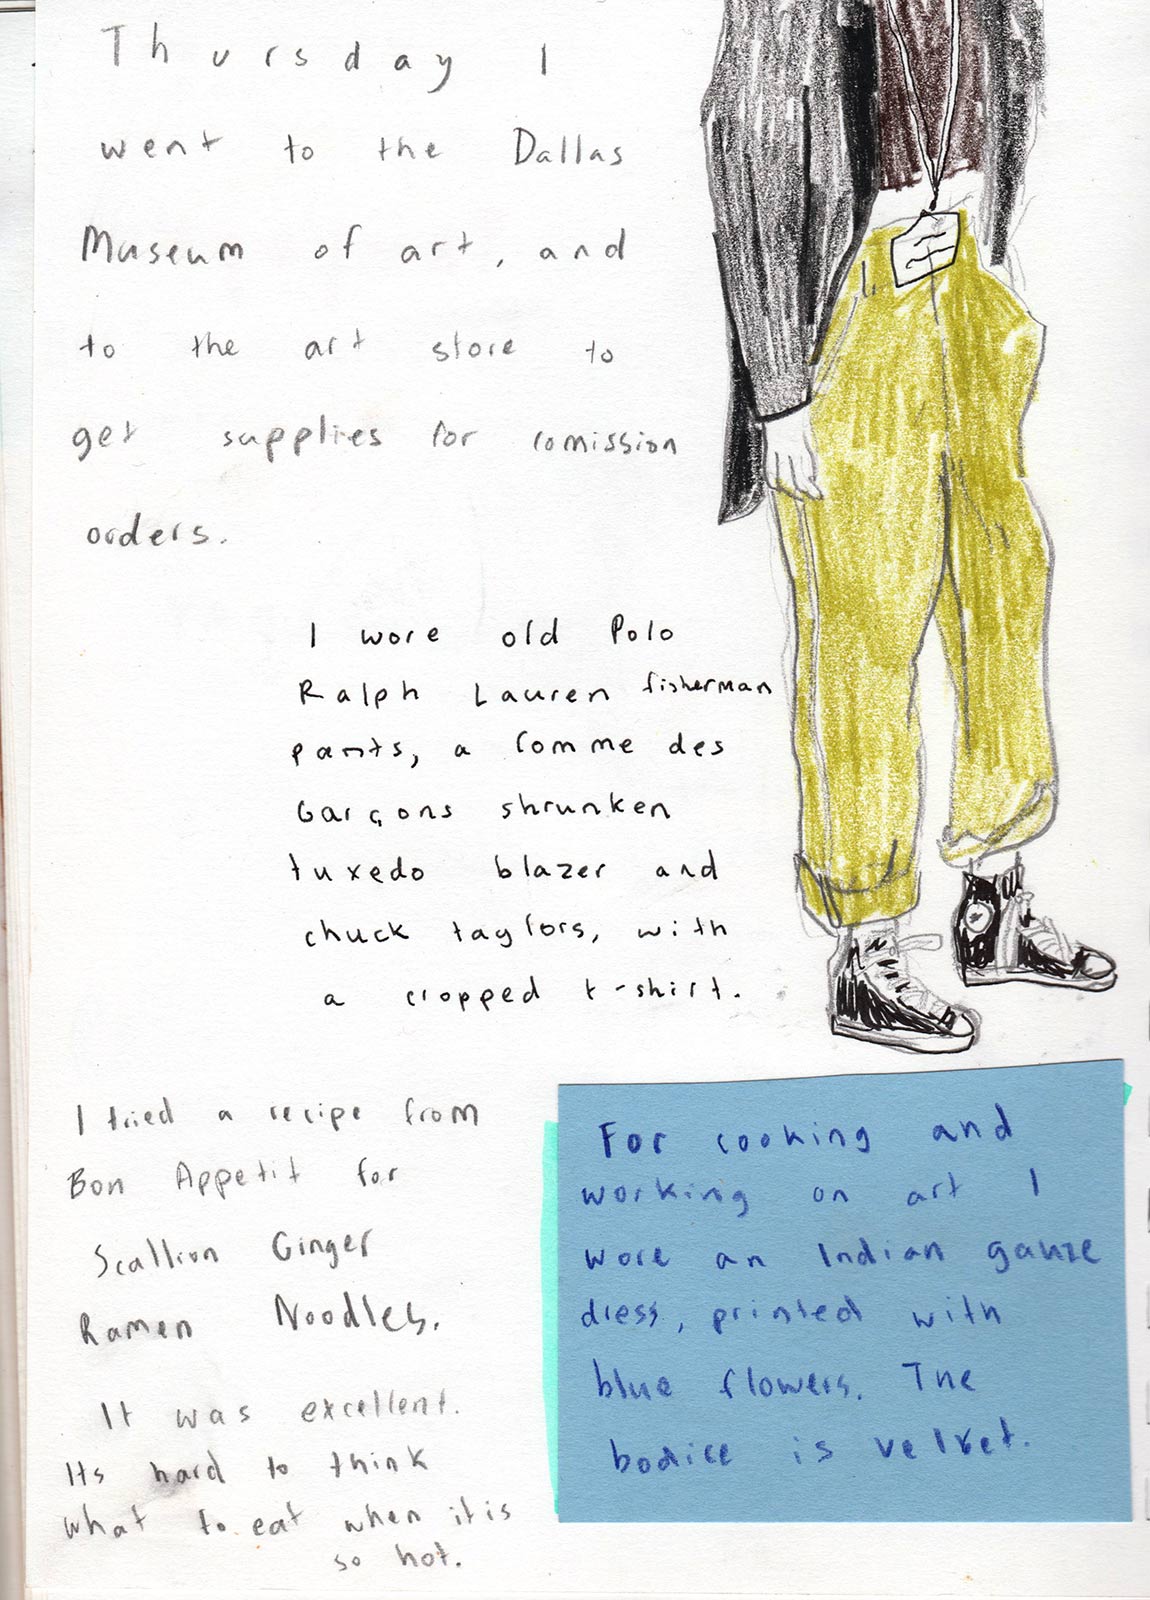 Thursday I
went to the Dallas
Museum of art, and
to the art store to
get supplies for comission
orders.
I wore old Polo
Ralph Lauren fisherman
pants, a Comme des
Garçons shrunken
tuxedo blazer and
chuck taylors, with
a cropped t-shirt.
I tried a recipe from
Bon Appetit for
Scallion Ginger
Ramen Noodles.
It was excellent.
Its hard to think
what to eat when it is
so hot.
For cooking and
working on art I
wore an Indian gauze
dress, printed with
blue flowers. The
bodice is velvet.